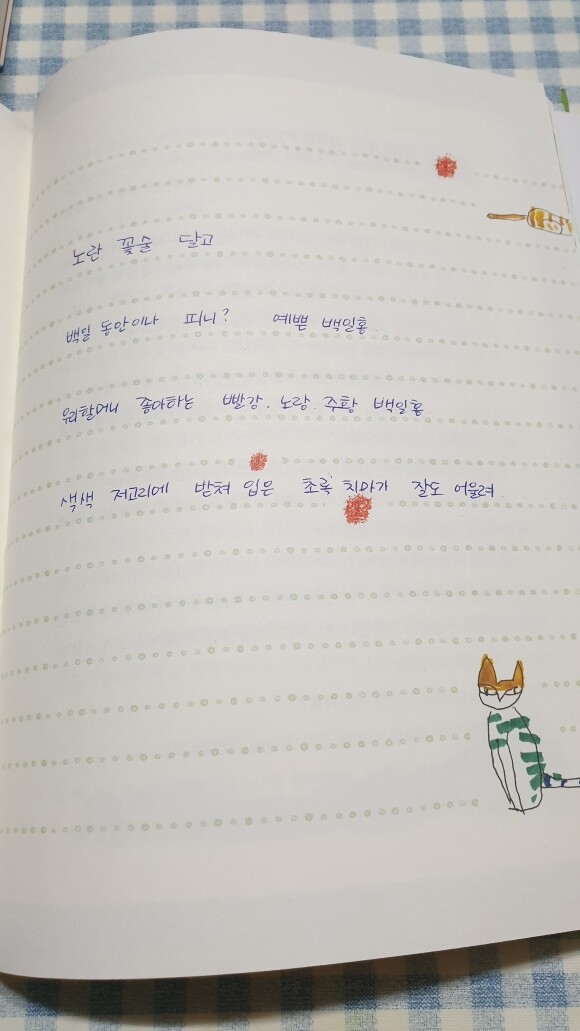 노란 꽃술 달고
백일 동안이나 피니? 예쁜 백일홍.
우리할머니 좋아하는 빨강. 노랑. 주황 백일홍
색색 저고리에 받쳐 입은 초록 치마가 잘도 어울려.